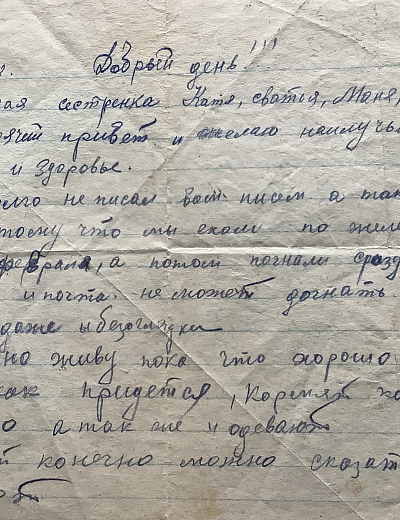 г. Добрый день!!!
ая сестренка Катя, сватья, Маня,
ячий привет и желаю наилучш
и здоровье.
лго не писал вам писем а так
тому что мы ехали по желе
февраля, а потом погнали сразу
и почта не может догнать.
даже и безоглядки
но живу пока что хорошо
как придется, Кормят хо
о а так же и одевают
й конечно можно сказат